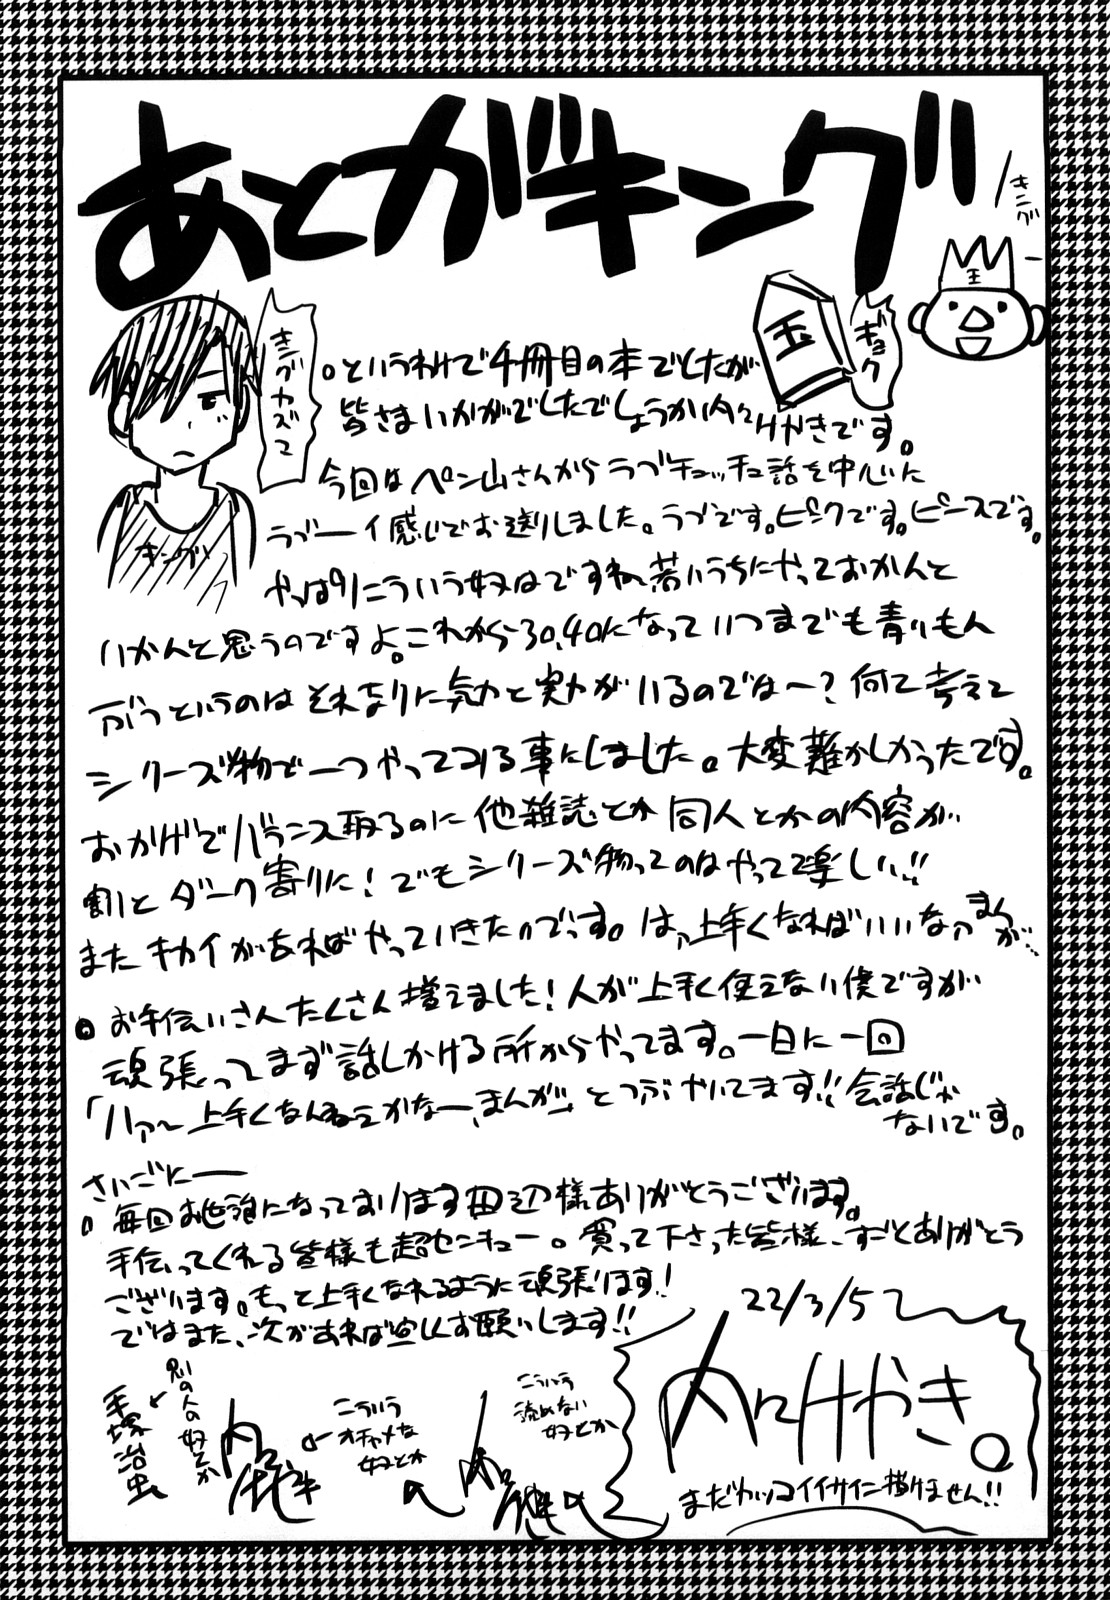 あとがキング
キング
玉
ギョク
王
キングカズて
キング
。というわけで4冊目の本でしたが
皆さまいかがでしたでしょうか内々けやきです。
今回はペン山さんからラブチュッチュ話を中心に
ラブーイ感じでお送りしました。ラブです。ピンクです。ピースです。
やっぱりこういう奴はですね、若いうちにやっておかんと
いかんと思うのですよ。これから30,40になっていつまでも青いもん
ぶつというのはそれなりに気力と実力がいるのでは〜?何て考えて
シリーズ物で一つやってみる事にしました。大変難かしかったです。
おかげでバランス取るのに他雑誌とか同人とかの内容が
割とダーク寄りに!でもシリーズ物ってのはやってて楽しい!!
またキカイがあればやっていきたいのです。はァ上手くなればいいなァまんが…
お手伝いさんたくさん増えました!人が上手く使えない僕ですが
頑張ってまず話しかける所からやってます。一日に一回
「ハァ〜上手くなんねえかなー、まんが」とつぶやいてます!!会話じゃ
ないです。
さいごにー
。毎回お世話になっております田辺様ありがとうございます。
手伝ってくれる皆様も超センキュー。買って下さった皆様、すごとありがとう
ございます。もっと上手くなれるように頑張ります!
ではまた、次があれば宜しくお願いします!!
22/3/5
内々けやき。
まだカッコイイサイン描けません!!
こういう
読めない
奴とか
こういう
オチャメな
奴とか
別の人の奴とか
手塚治虫